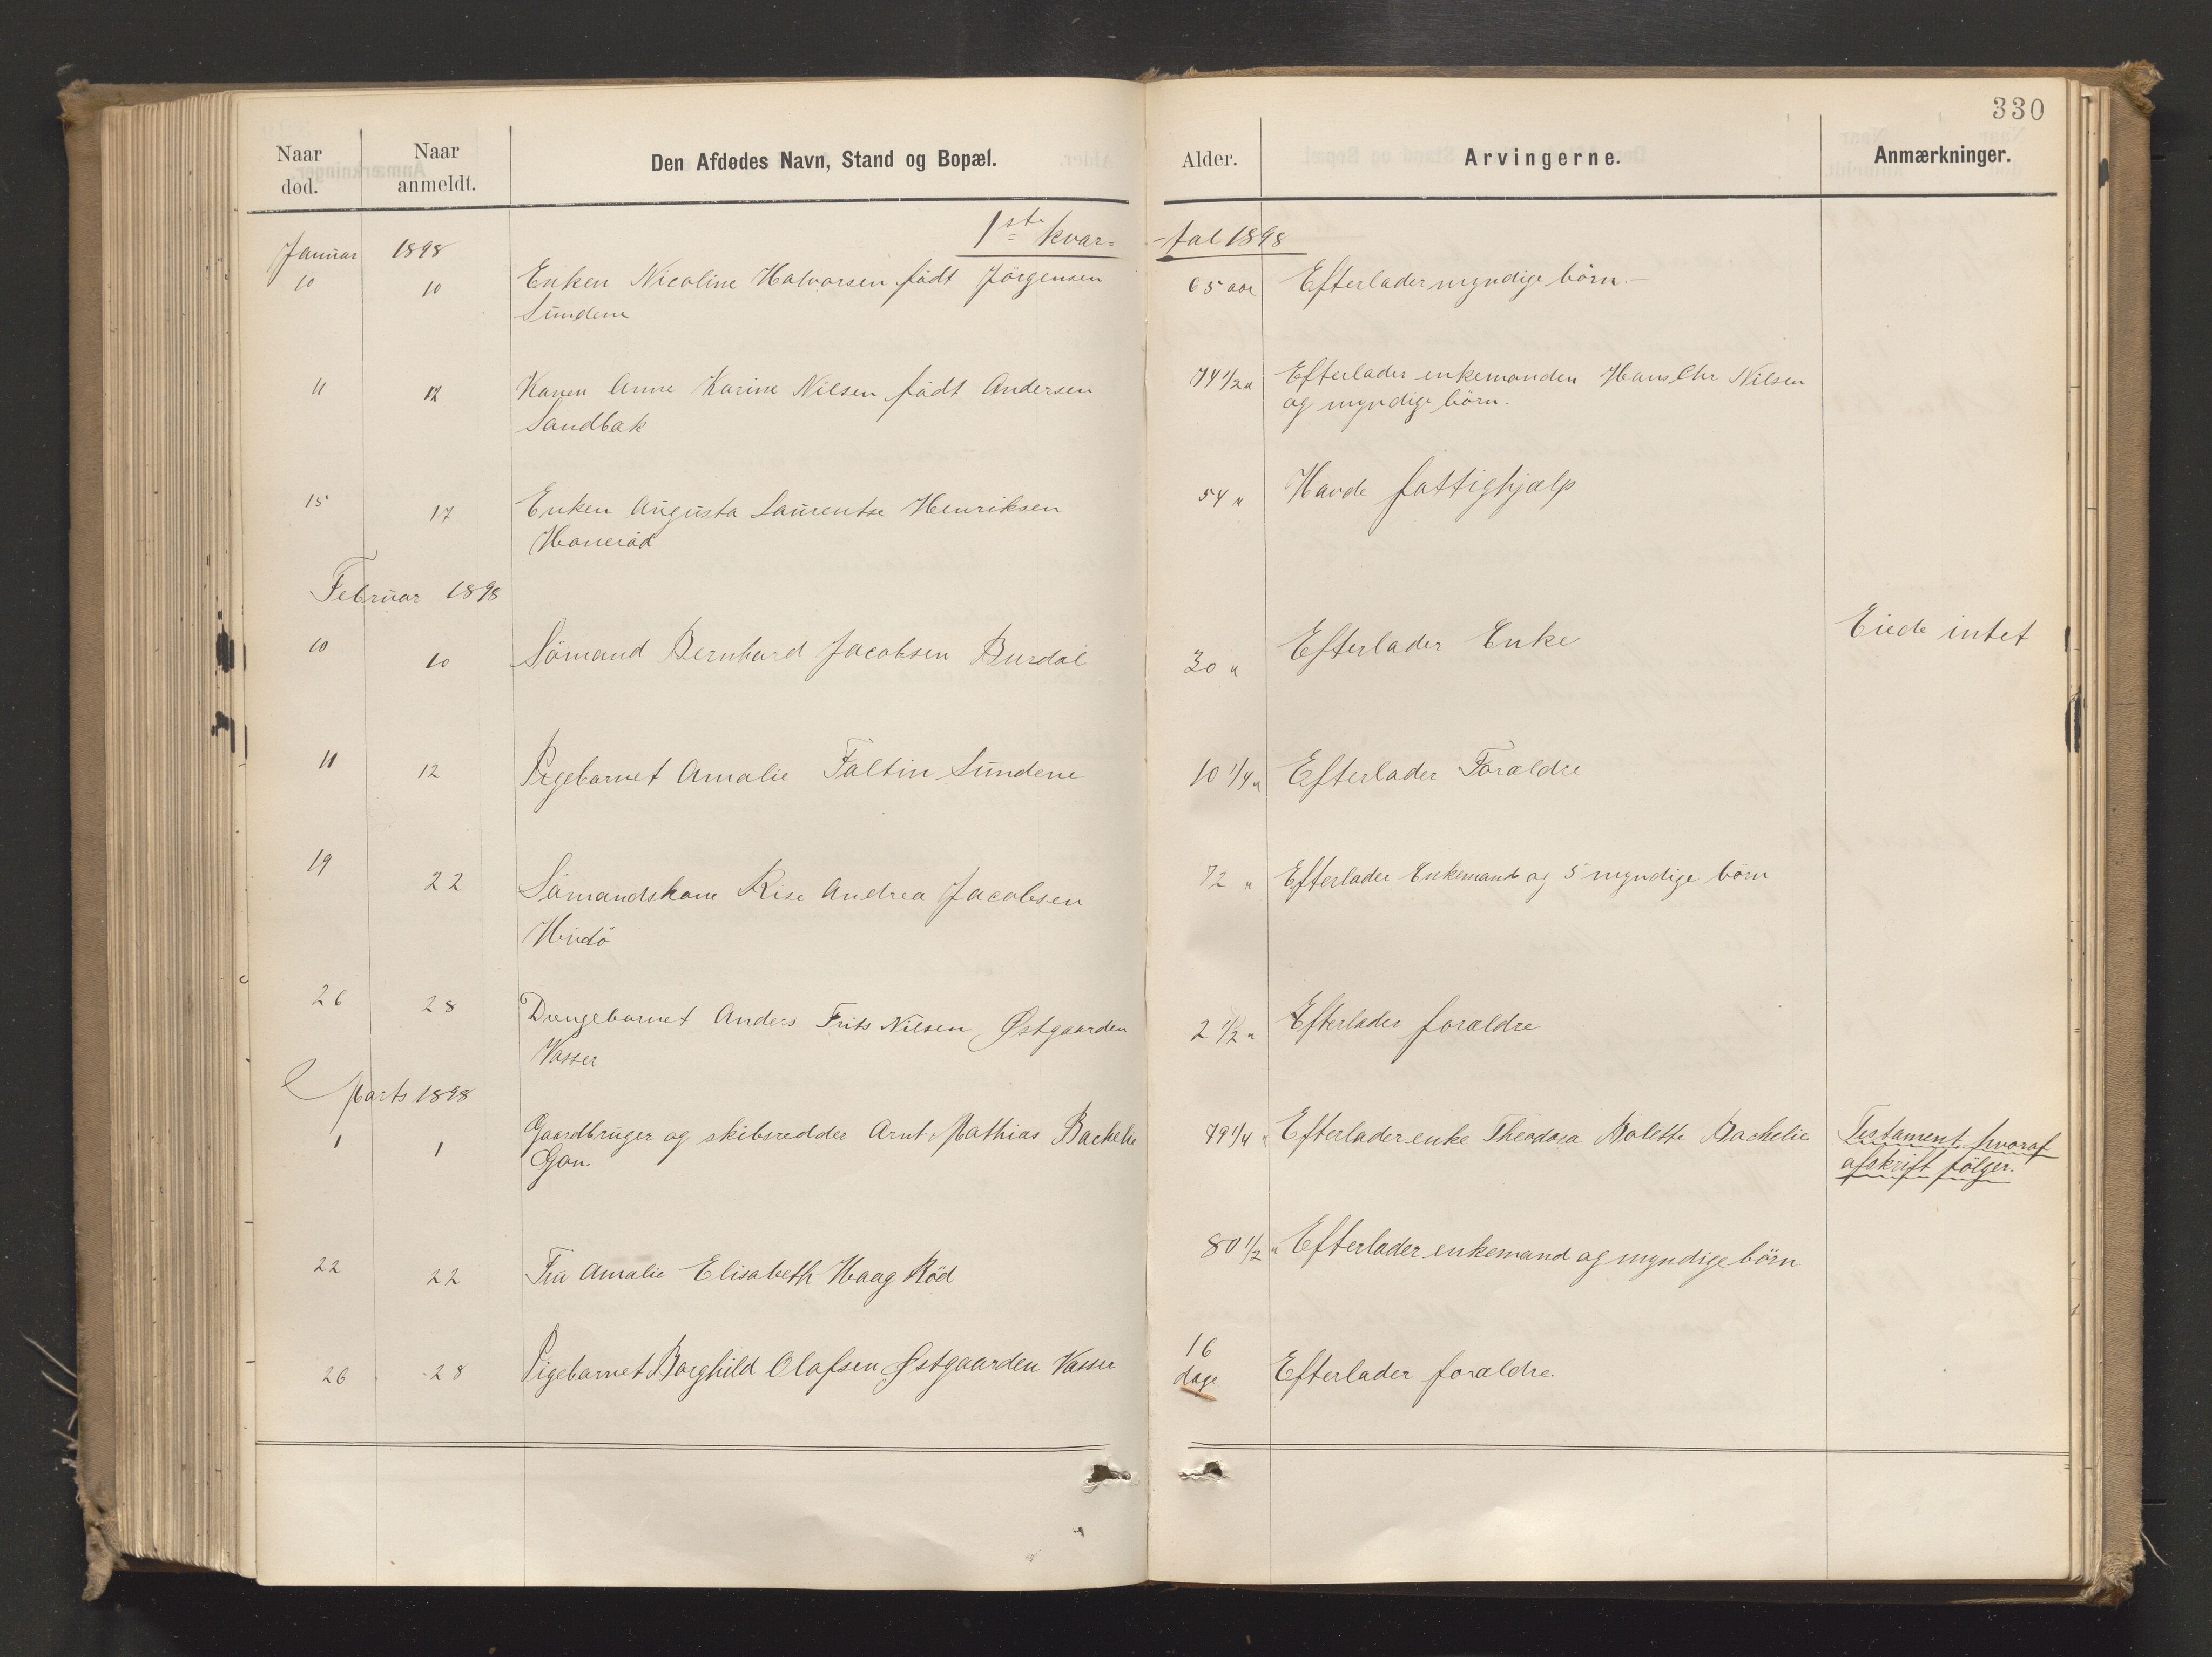 330
Naar død. Naar anmeldt. Den Afdødes Navn, Stand og Bopæl. Alder. Arvingerne. Anmærkninger.
1ste kvar= -tal 1898
Januar 1898
10 10 Enken Nicoline Halvorsen født Jörgensen 65 aar Efterlader myndige börn.-
Sundene
11 12 Konen Anne Karine Nilsen födt Andersen 74 1/2 " Efterlader enkemanden Hans Chr Nilsen
Sandbak og myndige börn.
15 17 Enken Augusta Laurentse Henriksen 54 " Havde fattighjælp
Haneröd
Februar 1898
10 10 Sömand Bernhard Jacobsen Burdal 30 " Efterlader Enke Eiede intet
11 12 Pigebarnet Amalie Faltin Sundene 10 1/4 " Efterlader Forældre
19 22 Sömandskone Rise Andrea Jacobsen 72 " Efterlader Enkemand og 5 myndige börn
Hvidö
26 28 Drengebarnet Anders Frits Nilsen Østgaarden 2 1/2 " Efterlader forældre
Vasser
Marts 1898
1 1 Gaardbruger og skibsredder Arnt Mathias Bachelie 79 1/4 " Efterlader enke Theodora Bolette Bachelie Testament hvoraf
Gon. afskrift fölger.
22 22 Fru Amalie Elisabeth Haag Röd 80 1/2 " Efterlader enkemand og myndige börn
26 28 Pigebarnet Borghild Olafsen Østgaarden Vasser 16 dage Efterlader forældre.